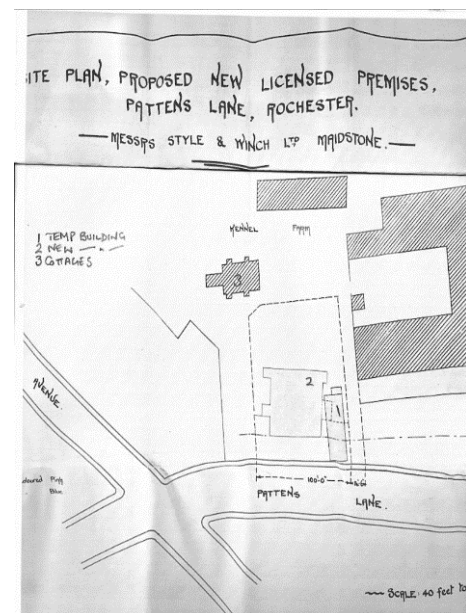 ITE PLAN, PROPOSED NEW LICENSED PREMISES,
PATTENS LANE, ROCHESTER.
MESSRS STYLE & WINCH LTD MAIDSTONE.
1 TEMP BUILDING
2 NEW — " —
3 COTTAGES
KENNEL FARM
3
2
1
AVENUE.
Pink
Blue
100'-0"
PATTENS LANE.
SCALE: 40 feet to